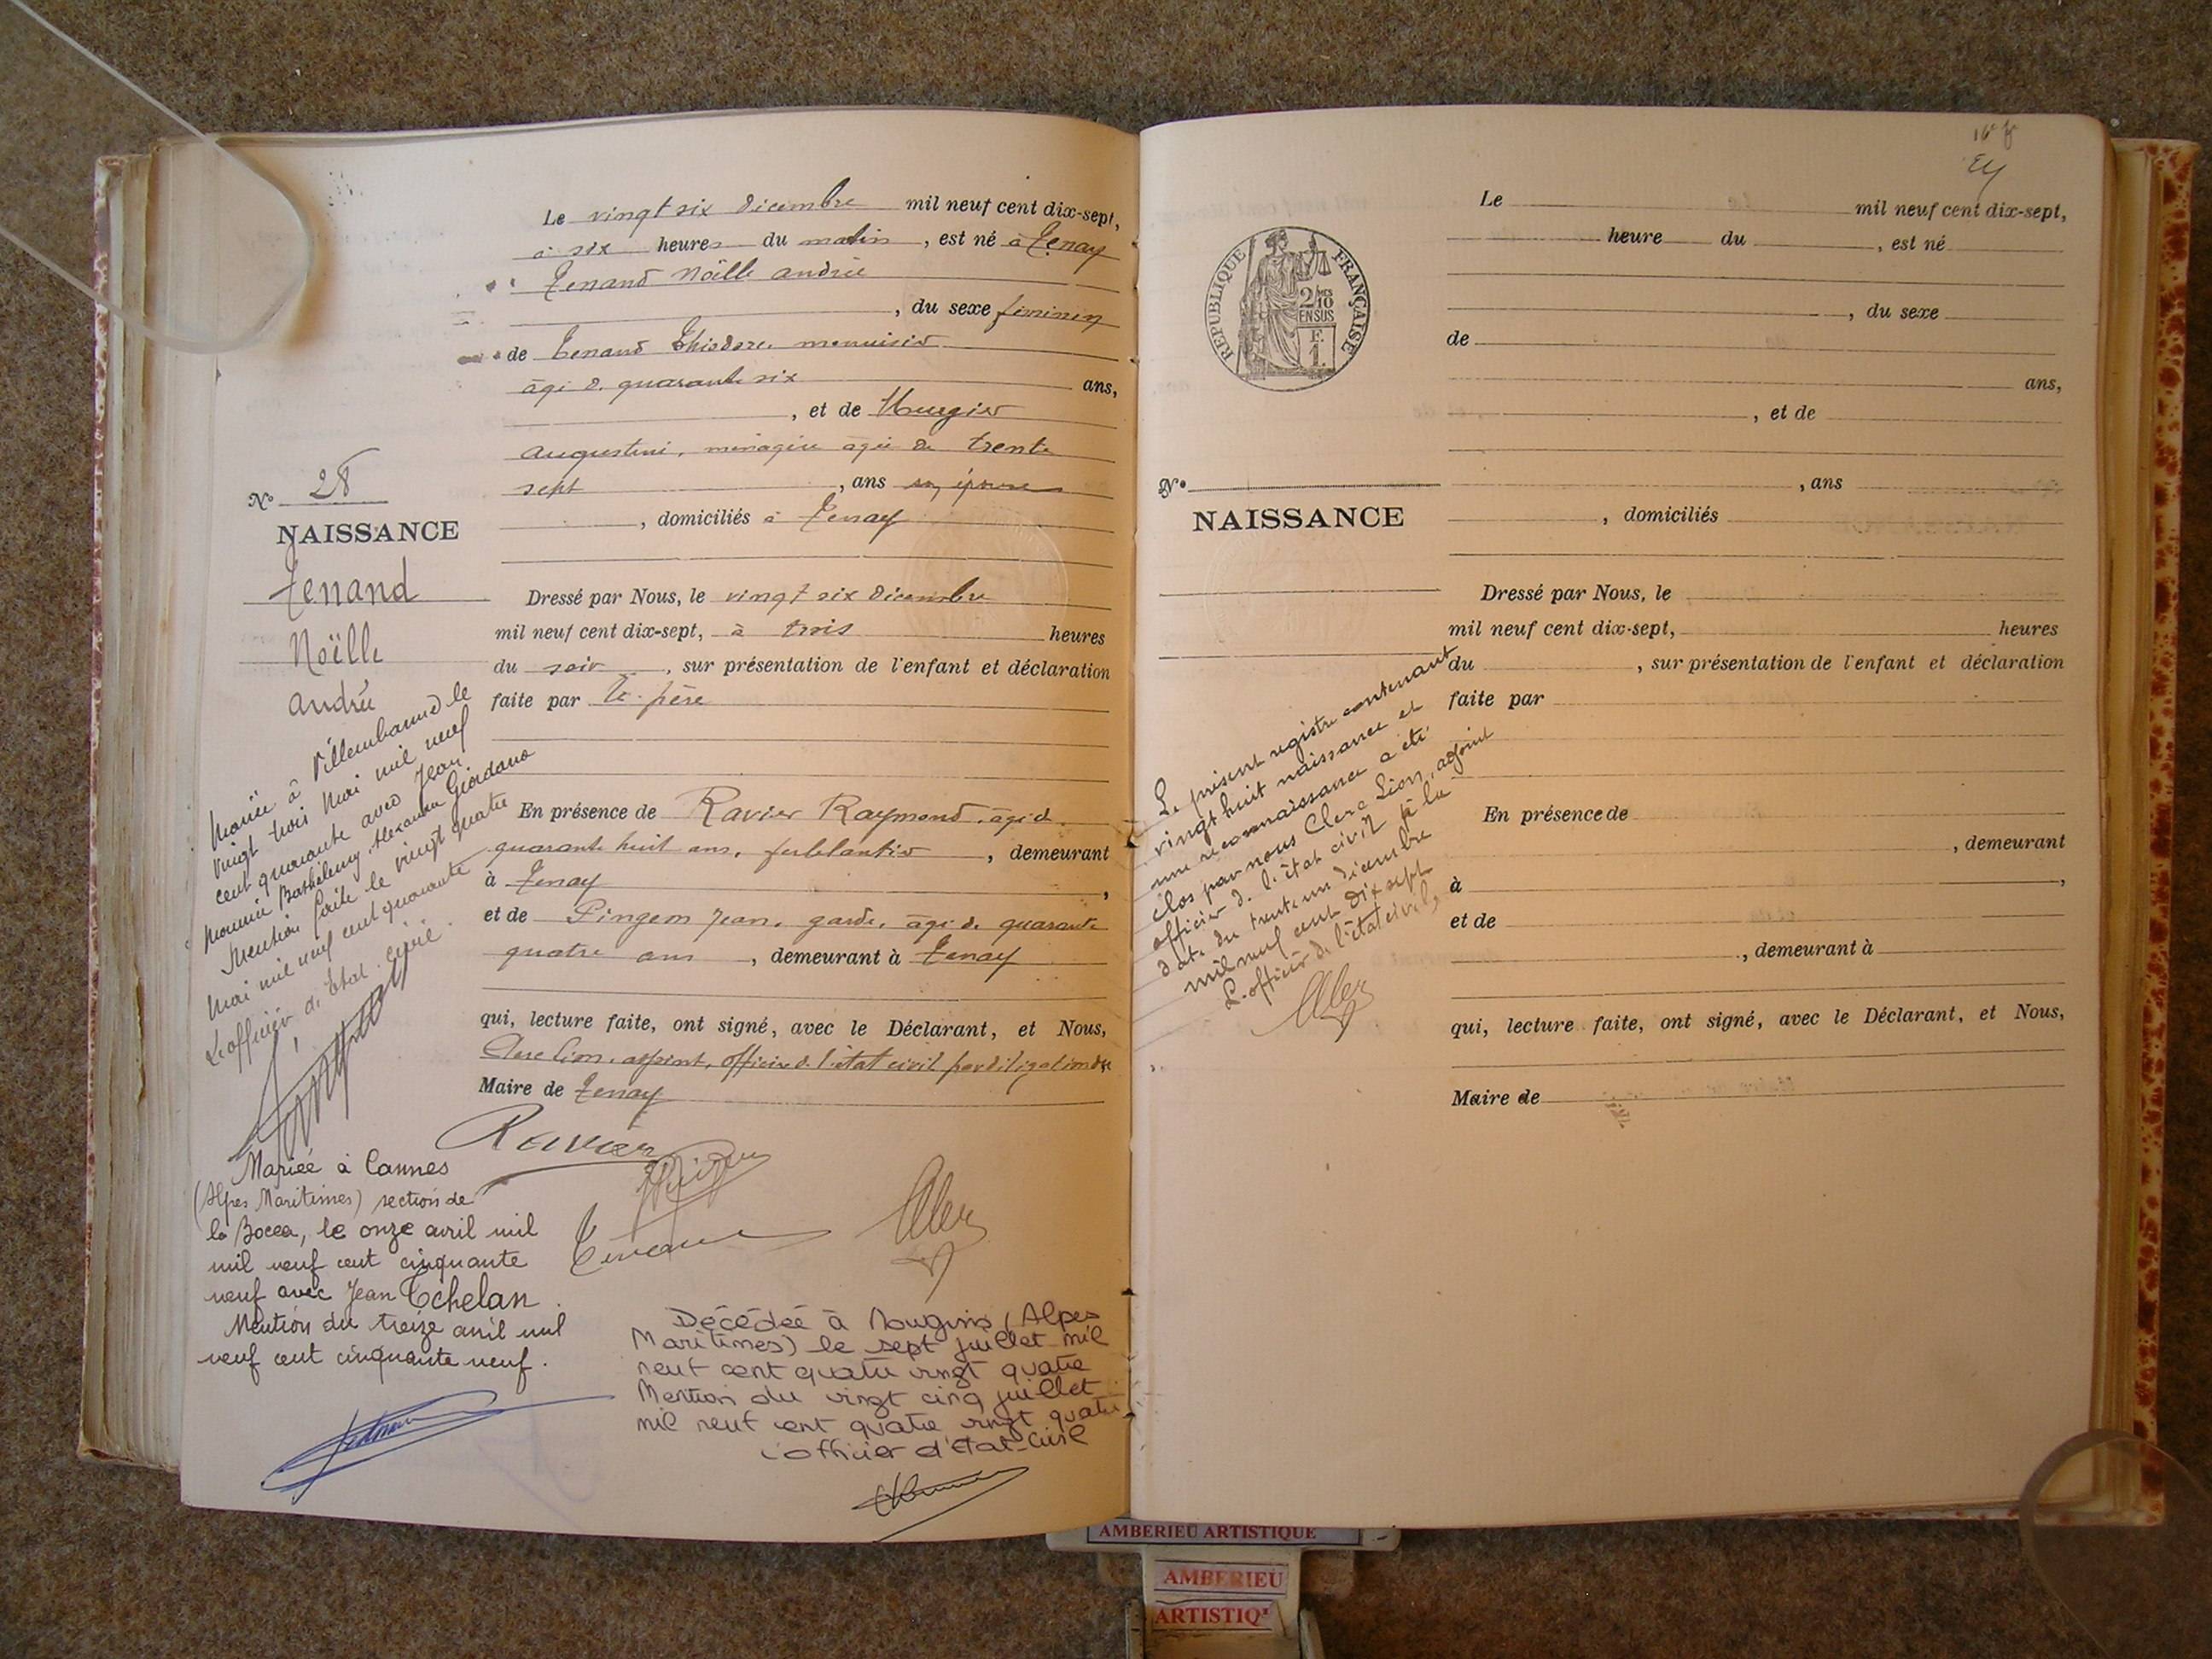 Le vingt six décembre mil neuf cent dix-sept,
à six heures du matin, est né à Tenay
Tenand Noëlle andrée
, du sexe féminin
de Tenand Théodore, menuisier
âgé de quarante six ans,
, et de
augustine, ménagère âgée de trente
sept, ans son épouse
, domiciliés à Tenay
N° 28
NAISSANCE
Tenand
Noëlle
andrée
Dressé par Nous, le vingt six décembre
mil neuf cent dix-sept, à trois heures
du soir, sur présentation de l'enfant et déclaration
faite par le père
En présence de Ravier Raymond, âgé de
quarante huit ans, ferblantier, demeurant
à Tenay,
et de Pingeon Jean, garde, âgé de quarante
quatre ans, demeurant à Tenay
qui, lecture faite, ont signé, avec le Déclarant, et Nous,
Clerc Lion, adjoint, officier de l'état civil par délégation du
Maire de Tenay
Mariée à Villeurbanne le
vingt trois Mai mil neuf
cent quarante avec Jean
Marie Barthélemy Alexandre Giordano
Mention faite le vingt quatre
Mai mil neuf cent quarante
L'officier de l'État civil.
Ravier
Mariée à Cannes
(Alpes Maritimes) section de
la Bocca, le onze avril mil
mil neuf cent cinquante
neuf avec Jean Tchelan.
Mention du treize avril mil
neuf cent cinquante neuf.
Décédée à Mougins (Alpes
Maritimes) le sept juillet mil
neuf cent quatre vingt quatre
Mention du vingt cinq juillet
mil neuf cent quatre vingt quatre
L'officier d'état-civil
16e f
REPUBLIQUE FRANÇAISE
2/10MES
EN SUS
F.
1.
Le mil neuf cent dix-sept,
heure du , est né
, du sexe
de
ans,
, et de
N°
, ans
NAISSANCE
, domiciliés
Dressé par Nous, le
mil neuf cent dix-sept, heures
du , sur présentation de l'enfant et déclaration
faite par
En présence de
, demeurant
à ,
et de
, demeurant à
qui, lecture faite, ont signé, avec le Déclarant, et Nous,
Maire de
Le présent registre contenant
vingt huit naissance et
une reconnaissance a été
clos par nous Clerc Lion, adjoint
officier de l'état civil à la
date du trente un décembre
mil neuf cent dix sept
L'officier de l'état civil,
AMBERIEU ARTISTIQUE
AMBERIEU
ARTISTIQ